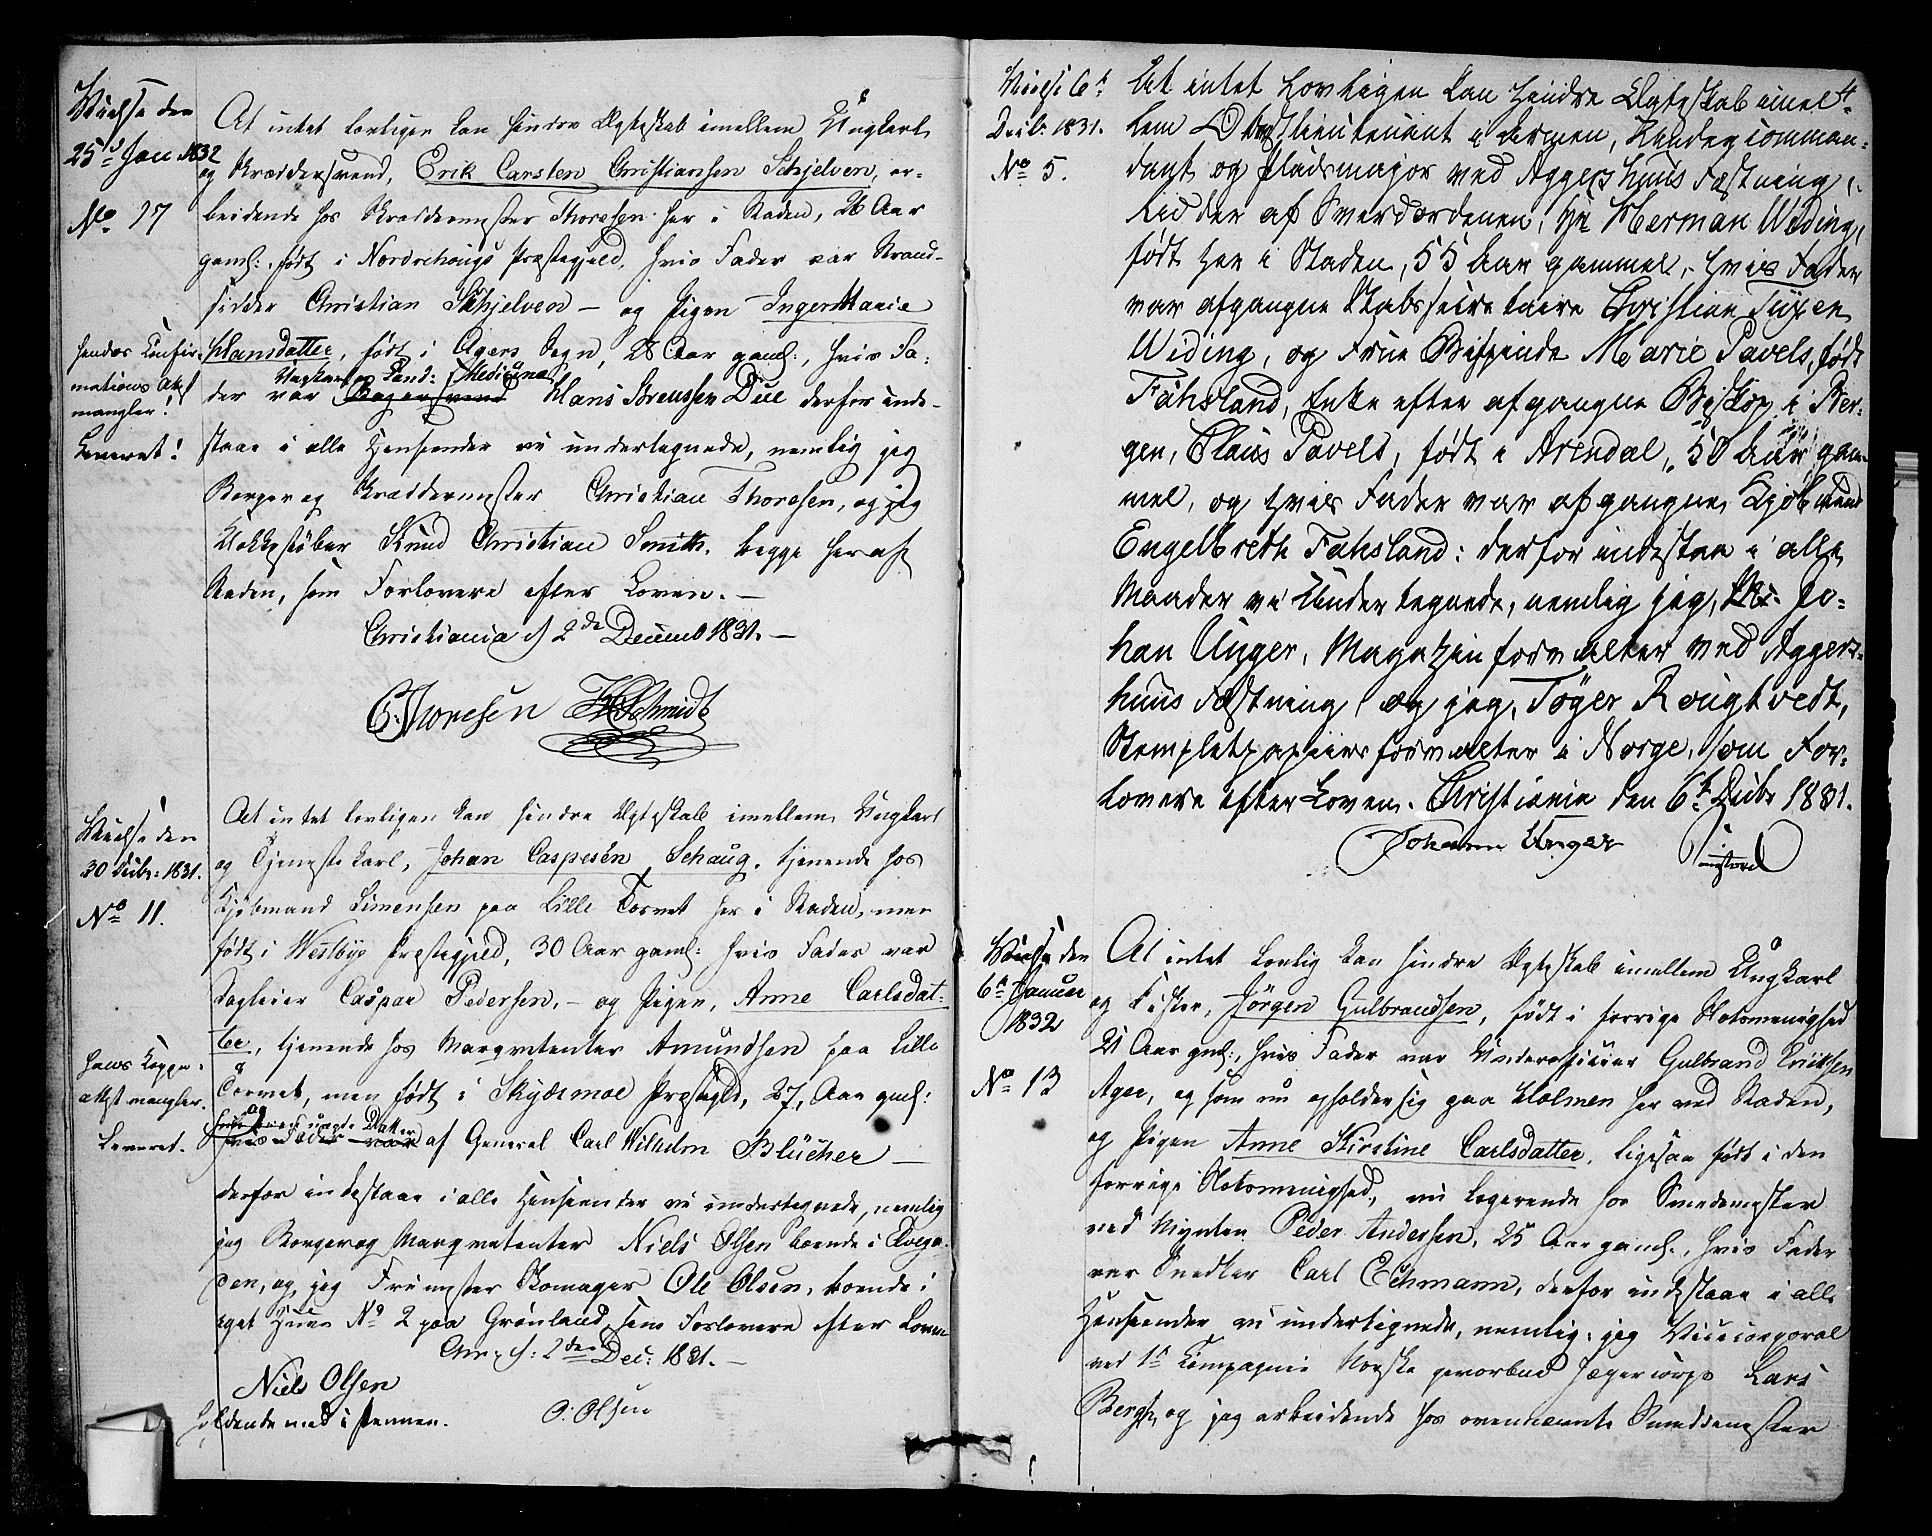 Vielse den
25de Jan 1832
No 17
At intet lovligen kan hindre Ægteskab imellem Ungkarl
og Skræddersvend, Erik Carsten Christiansen Schjelven, ar-
beidende hos Skræddermester Thoresen her i Staden, 26 Aar
gaml:, født i Nordrehougs Præstegjeld, hvis Fader var Strand-
sidder Christian Schjelven – og Pigen Inger Marie
hendes Confir-
mations Att
mangler!
Leveret!
Hansdatter, født i Agers Sogn, 28 Aar gaml:, hvis Fa-
Cand: Medicinæ
der var Hans Brenssen Due derfor inde-
staae i alle Henseender vi undertegnede, nemlig jeg
Borger og Skræddermester Christian Thoresen, og jeg
Klokkestøber Knud Christian Smith, begge her af
Staden, som Forlovere efter Loven. –
Christiania d 2de Decemb 1831. –
C. Thoresen KCSchmidt
Viielse den
30 Decbr: 1831.
No 11.
At intet lovligen kan hindre Ægteskab imellem Ungkarl
og Tjenestekarl, Johan Caspesen Schaug, tjenende hos
Kjøbmand Simensen paa Lille Torvet her i Staden, men
født i Westbye Præstegjeld, 30 Aar gaml: hvis Fader var
Dagleier Caspar Pedersen, – og Pigen, Anne Carlsdat-
ter, tjenende hos Marqvetenter Amundsen paa Lille
hans Koppe-
attest mangler.
Leveret.
Torvet, men født i Skydsmoe Præstegld, 27, Aar gml:
og
hvis Fader var af General Carl Wilhelm Blücher –
derfor indestaae i alle Henseender vi undertegnede, nemlig
jeg Borger og Marqvetenter Niels Olsen boende i
den, og jeg Frimester Skomager Ole Olsen, boende i
eget Huus No 2 paa Grønland, som Forlovere efter Loven
Chr: d: 2den Dec: 1831. –
Niels Olsen
holdende med i Pennen.
O: Olsen
Viielse 6t
Decbr: 1831.
No 5.
At intet Lovligen kan Hindre Ægteskab imel-
lem Oberstlieutenant i Armeen, Undercomman-
dant og Pladsmajor ved Aggershuus Fæstning,
Ridder af Sverdordenen, Hr Herman Widing,
født her i Staden, 55 Aar gammel, hvis Fader
var afgangne Stabssecretaire Christian Tuxen
Widing, og Frue Bispinde Marie Pavels, født
Fahsland, Enke efter afgangne Biskop i Ber-
gen, Claus Pavels, født i Arendal, 50 Aar gam-
mel, og hvis Fader var afgangne Kjøbmand
Engelbreth Fahsland: derfor indestaa i alle
Maader vi Undertegnede, nemlig jeg, Jo-
han Unger, Magazinforvalter ved Aggers-
huus Fæstning, og jeg, Tøger Rougtvedt,
Stempletpapiirsforvalter i Norge, som For-
lovere efter Loven. Christiania den 6t Decbr 1831.
Johann Unger
Viielse den
6t Januar
1832
No 13
At intet lovlig kan hindre Ægteskab imellem Ungkarl
og Fisker, Jörgen Gulbrandsen, født i forrige Slotsmenighed
21 Aar gml:, hvis Fader var Underofficier Gulbrand Eriksen
Ager, og som nu opholder sig paa Holmen her ved Staden,
og Pigen Anne Kirstine Carlsdatter, ligesaa født i den
forrige Slotsmenighed, nu logerende hos Smedemester
ved Mynten Peder Andersen, 25 Aar gaml., hvis Fader
var Snedker Carl Echmann, derfor indestaae i alle
Henseender vi undertegnede, nemlig: jeg Vicecorporal
ved 1st Compagnie Norske gevorbne Jægercorps Lars
Bergh, og jeg arbeidende hos ovennævnte Smedemester